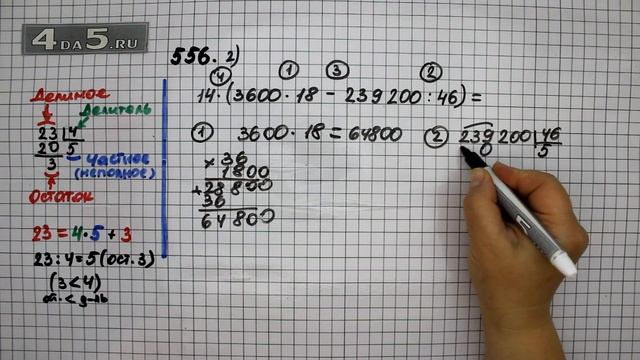 4DA5.RU
556. 2)
④ ① ③ ②
14·(3600·18 - 239200:46)=
Делимое
Делитель
23 4
20 5
3
Частное
(неполное)
Остаток
23 = 4·5 + 3
23 : 4 = 5 (ост. 3)
(3 < 4)
ост. < д-ль
① 3600·18 = 64800
× 36
1800
+ 28800
36
64800
② 239200 46
0 5